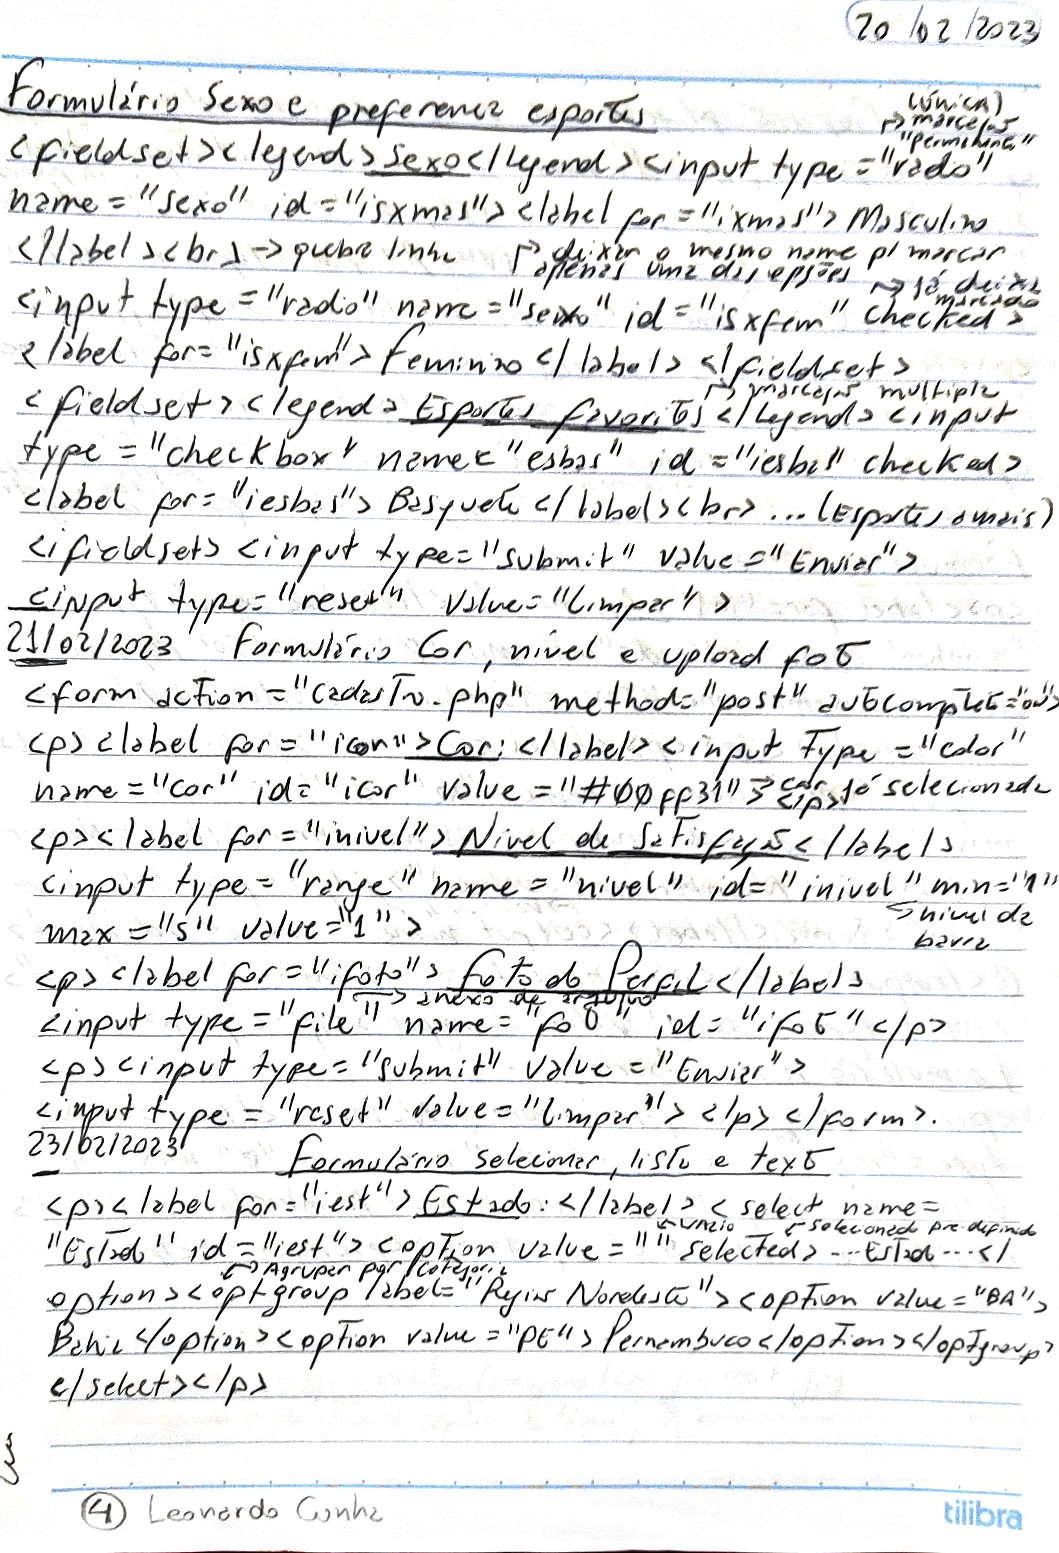 20/02/2023
Formulário Sexo e preferencia esportes
(única)
↱ marcações
"permitima"
<fieldset><legend>Sexo</legend><input type="rado"
name="sexo" id="isxmas"><label for="ixmas"> Masculino
</label><br> → quebra linha
↱ deixar o mesmo name p/ marcar
apenas uma das opções
→ já deixa
marcado
<input type="rado" name="sexo" id="isxfem" checked>
<label for="isxfem"> Feminino </label> </fieldset>
↱ marcações multipla
<fieldset><legend> Esportes favoritos </legend> <input
type="checkbox" name="esbas" id="iesbas" checked>
<label for="iesbas"> Basquete </label><br> ... (Esportes a mais)
</fieldset> <input type="submit" value="Enviar">
<input type="reset" value="Limpar">
21/02/2023 Formulário Cor, nível e upload foto
<form action="cadastro.php" method="post" autocomplete="on">
<p><label for="icor">Cor:</label><input Type="color"
name="cor" id="icor" value="#00ff31"> → cor já selecionada
</p>
<p><label for="inivel">Nível de Satisfação</label>
<input type="range" name="nivel" id="inivel" min="1"
↪ nivel da
barra
max="5" value="1">
<p><label for="ifoto"> Foto do Perfil</label>
↪ anexo de arquivo
<input type="file" name="foto" id="ifoto"</p>
<p><input type="submit" value="Enviar">
<input type="reset" value="Limpar"> </p> </form>.
23/02/2023
Formulário selecionar, lista e texto
<p><label for="iest">Estado:</label> <select name=
↩ vazio ↙ selecionado pre-definido
"Estado" id="iest"> <option value="" selected> ...Estado...</
↩ Agrupar por categoria
option><optgroup label="Região Nordeste"><option value="BA">
Bahia </option><option value="PE"> Pernambuco</option></optgroup>
</select></p>
4 Leonardo Cunha
tilibra